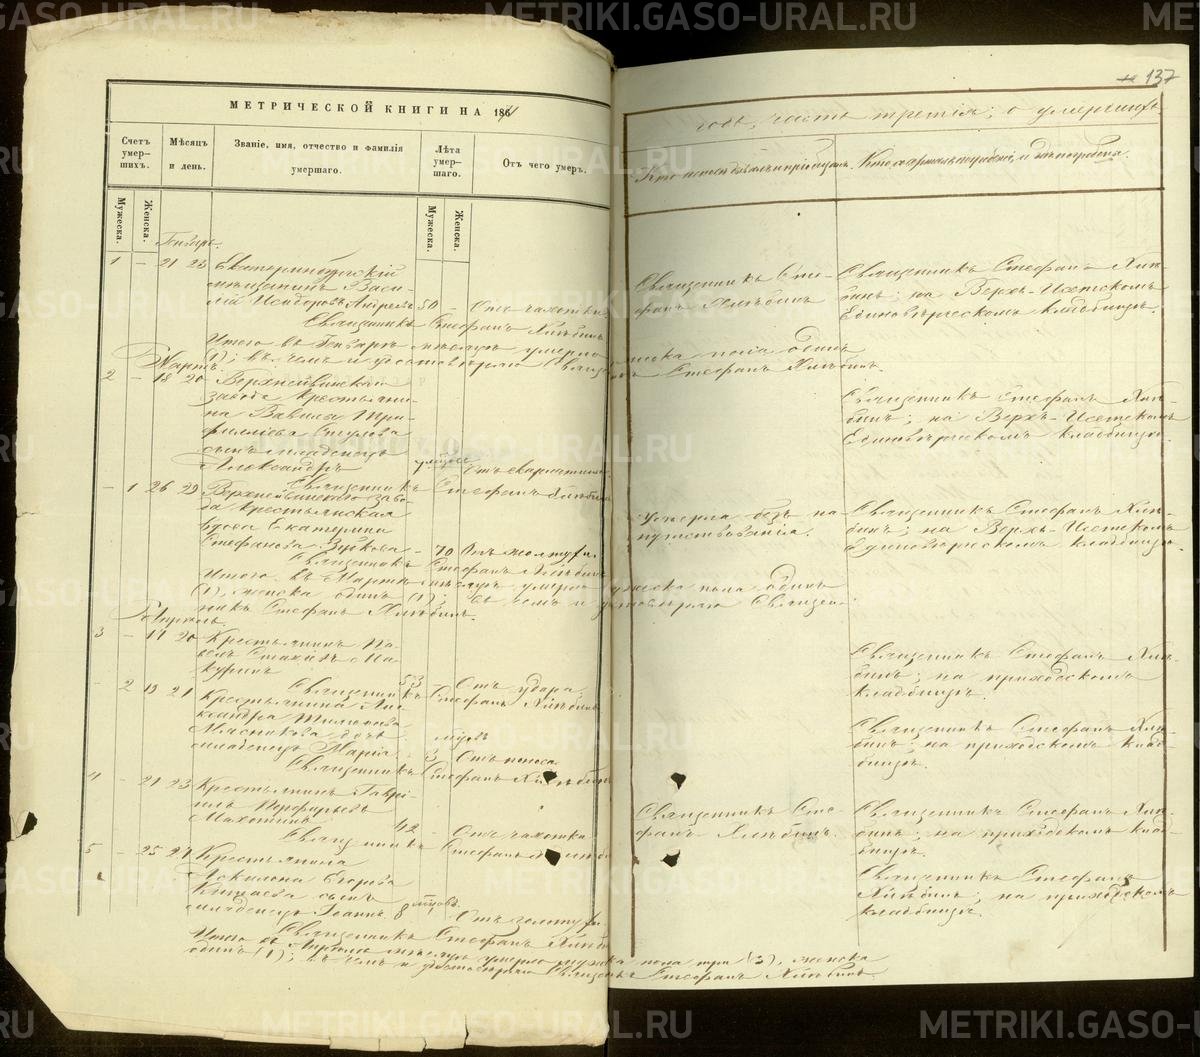 137
МЕТРИЧЕСКОЙ КНИГИ НА 1864
годъ, часть третія, о умершихъ
Счетъ умер-шихъ.
Мѣсяцъ и день.
Званіе, имя, отчество и фамилія умершаго.
Лѣта умер-шаго.
Отъ чего умеръ.
Кто исповѣдывалъ и пріобщалъ.
Кто совершалъ погребеніе, и гдѣ погребены.
Мужеска.
Женска.
Мужеска.
Женска.
Генварь.
1 – 21 23 Екатеринбургскій
мѣщанинъ Васи-
лій Исидоровъ 50 – Отъ чахотки
Священникъ Стефанъ Хлѣбинъ
Священникъ Сте-
фанъ Хлѣбинъ
Священникъ Стефанъ Хлѣ-
бинъ; на Верхъ-Исетскомъ
Единовѣрческомъ кладбищѣ.
Итого въ Генварѣ мѣсяцѣ умерло мужеска пола одинъ
(1); въ чемъ и удостовѣряю Священникъ Стефанъ Хлѣбинъ.
Мартъ.
2 – 18 20 Верхнейвинскаго
завода крестьяни-
на Вавилы Три-
филіева
сынъ младенецъ
Александръ
Отъ скарлатины
Священникъ Стефанъ Хлѣбинъ
Священникъ Стефанъ Хлѣ-
бинъ; на Верхъ-Исетскомъ
Единовѣрческомъ кладбищѣ.
– 1 26 29 Верхнейвинскаго заво-
да крестьянская
вдова Екатерина
Стефанова Зубкова – 70
Священникъ Стефанъ Хлѣбинъ
Умерла безъ на-
путствованія.
Священникъ Стефанъ Хлѣ-
бинъ; на Верхъ-Исетскомъ
Единовѣрческомъ кладбищѣ.
Итого въ Мартѣ мѣсяцѣ умерло мужеска пола одинъ
(1), женска одна (1); въ чемъ и удостовѣряю Священ-
никъ Стефанъ Хлѣбинъ.
Апрѣль.
3 – 17 20 Крестьянинъ Па-
велъ
53 Отъ удара
Священникъ Стефанъ Хлѣбинъ
Священникъ Стефанъ Хлѣ-
бинъ; на приходскомъ
кладбищѣ.
– 2 19 21 Крестьянина Але-
ксандра
Мясникова дочь
младенецъ Марія 3 Отъ поноса
Священникъ Стефанъ Хлѣбинъ
Священникъ Стефанъ Хлѣ-
бинъ; на приходскомъ клад-
бищѣ.
4 – 21 23 Крестьянинъ Гаврі-
илъ Порфирьевъ
42 – Отъ чахотки
Священникъ Стефанъ Хлѣбинъ
Священникъ Сте-
фанъ Хлѣбинъ.
Священникъ Стефанъ Хлѣ-
бинъ; на приходскомъ клад-
бищѣ.
5 – 25 27 Крестьянина
Аскалона Егорова
сынъ
младенецъ Іоаннъ 8 мѣсов.
Отъ золотухи
Священникъ Стефанъ Хлѣбинъ
Священникъ Стефанъ
Хлѣбинъ; на приходскомъ
кладбищѣ.
Итого въ Апрѣлѣ мѣсяцѣ умерло мужска пола три (3), женска
одинъ (1); въ чемъ и удостовѣряю Священникъ Стефанъ Хлѣбинъ.
METRIKI.GASO-URAL.RU